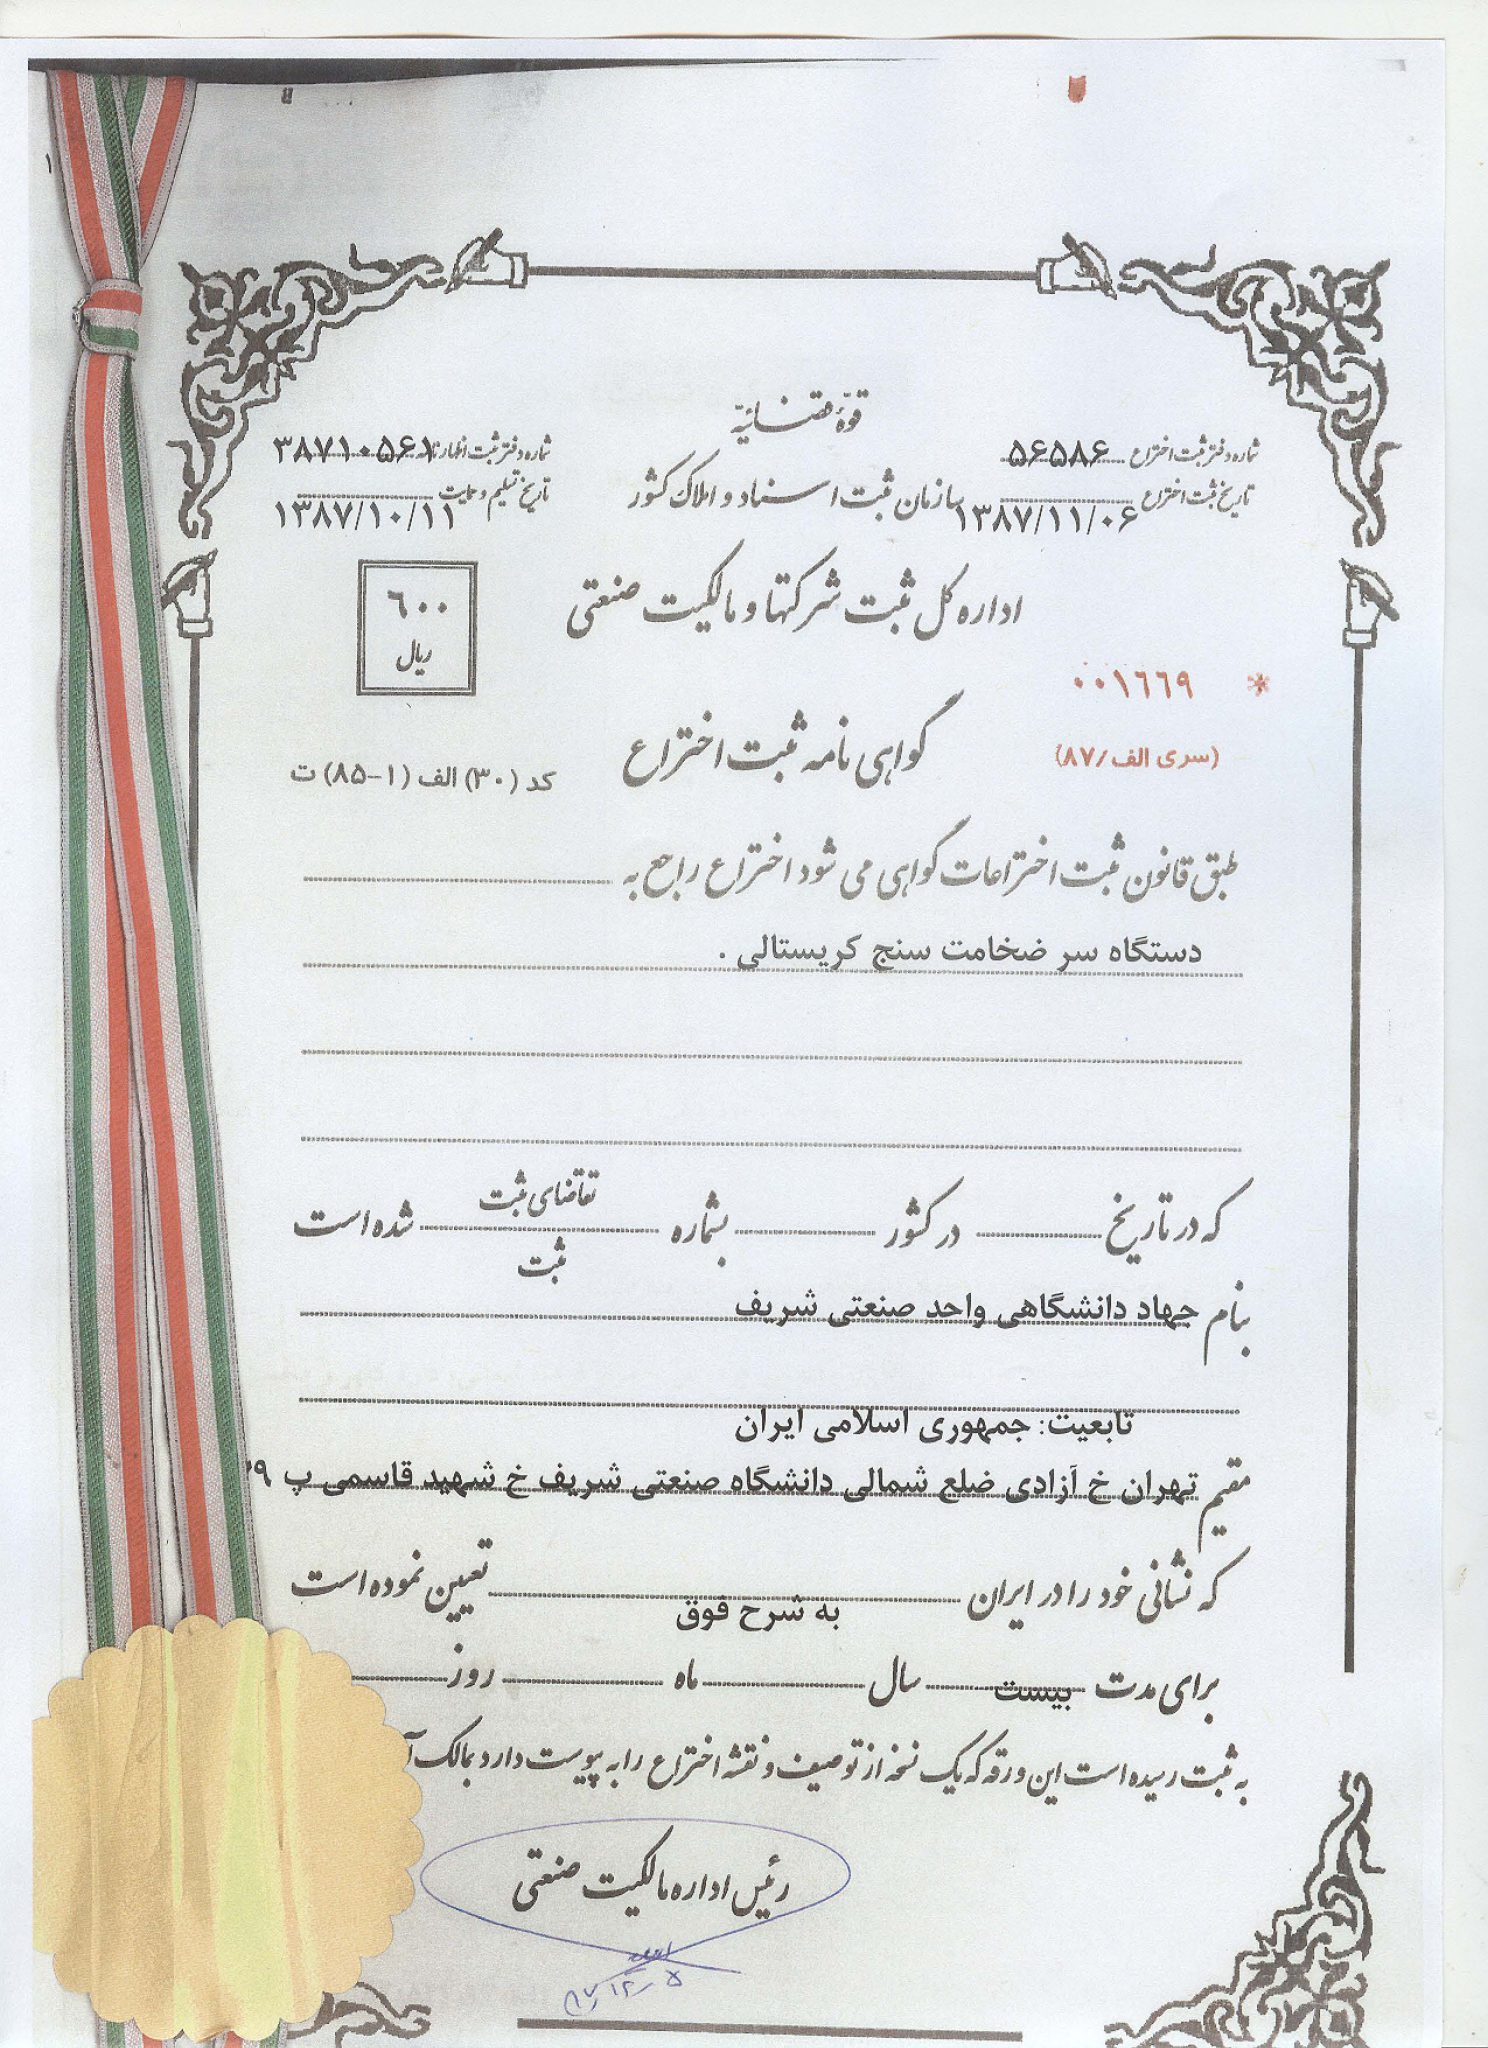 قوّهٔ قضائیّه
شماره دفتر ثبت اختراع ۵۶۵۸۶
شماره دفتر ثبت اظهارنامه ۳۸۷۱۰۵۶۱
سازمان ثبت اسناد و املاک کشور
تاریخ ثبت اختراع ۱۳۸۷/۱۱/۰۶
تاریخ تسلیم و حمایت ۱۳۸۷/۱۰/۱۱
اداره کل ثبت شرکتها و مالکیت صنعتی
۶۰۰
ریال
* ۰۰۱۶۶۹
(سری الف/۸۷)
گواهی نامه ثبت اختراع
کد (۳۰) الف (۱-۸۵) ت
طبق قانون ثبت اختراعات گواهی می شود اختراع راجع به
دستگاه سر ضخامت سنج کریستالی .
که در تاریخ در کشور بشماره تقاضای ثبت شده است
ثبت
بنام جهاد دانشگاهی واحد صنعتی شریف
تابعیت: جمهوری اسلامی ایران
مقیم تهران خ آزادی ضلع شمالی دانشگاه صنعتی شریف خ شهید قاسمی پ
که نشانی خود را در ایران تعیین نموده است
به شرح فوق
برای مدت بیست سال ماه روز
به ثبت رسیده است این ورقه که یک نسخه از توصیف و نقشه اختراع را به پیوست دارد بمالک
رئیس اداره مالکیت صنعتی